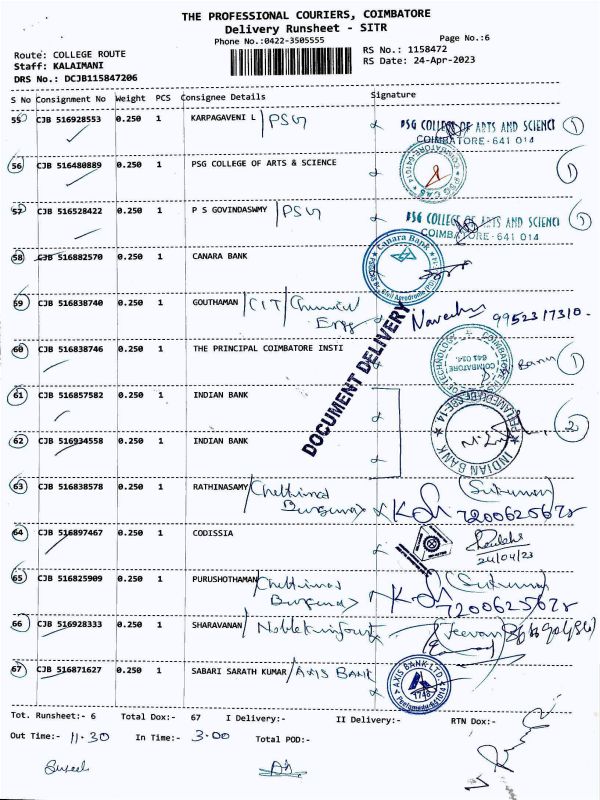 THE PROFESSIONAL COURIERS, COIMBATORE
Delivery Runsheet - SITR
Phone No.:0422-3505555
Page No.:6
Route: COLLEGE ROUTE
RS No.: 1158472
Staff: KALAIMANI
RS Date: 24-Apr-2023
DRS No.: DCJB115847206
S No Consignment No Weight PCS Consignee Details Signature
55 CJB 516928553 0.250 1 KARPAGAVENI L / PSG
PSG COLLEGE OF ARTS AND SCIENCE
COIMBATORE - 641 014
1
56 CJB 516480889 0.250 1 PSG COLLEGE OF ARTS & SCIENCE
1
57 CJB 516528422 0.250 1 P S GOVINDASWMY / PSG
PSG COLLEGE OF ARTS AND SCIENCE
COIMBATORE - 641 014
1
58 CJB 516882570 0.250 1 CANARA BANK
Canara Bank
59 CJB 516838740 0.250 1 GOUTHAMAN / CIT / Chemical
Engg
9952317310.
DOCUMENT DELIVERY
60 CJB 516838746 0.250 1 THE PRINCIPAL COIMBATORE INSTI
COIMBATORE
641 014.
1
61 CJB 516857582 0.250 1 INDIAN BANK
62 CJB 516934558 0.250 1 INDIAN BANK
INDIAN BANK
2
63 CJB 516838578 0.250 1 RATHINASAMY / Chettinad
7200625678
64 CJB 516897467 0.250 1 CODISSIA
24/04/23
65 CJB 516825909 0.250 1 PURUSHOTHAMAN / Chettinad
7200625678
66 CJB 516928333 0.250 1 SHARAVANAN /
(Jeevan)
67 CJB 516871627 0.250 1 SABARI SARATH KUMAR / AXIS BANK
AXIS BANK LTD.
1748
Tot. Runsheet:- 6 Total Dox:- 67 I Delivery:- II Delivery:- RTN Dox:-
Out Time:- 11.30 In Time:- 3.00 Total POD:-